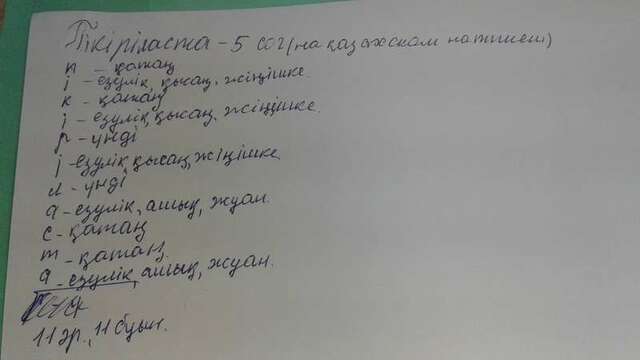 Пікіріласта - 5 сог (на казахском напишем)
п - қатаң
і - езулік, қысаң, жіңішке.
к - қатаң
і - езулік, қысаң, жіңішке.
р - үнді
і - езулік, қысаң, жіңішке
л - үнді
а - езулік, ашық, жуан.
с - қатаң
т - қатаң.
а - езулік, ашық, жуан.
11 әр., 11 буын.